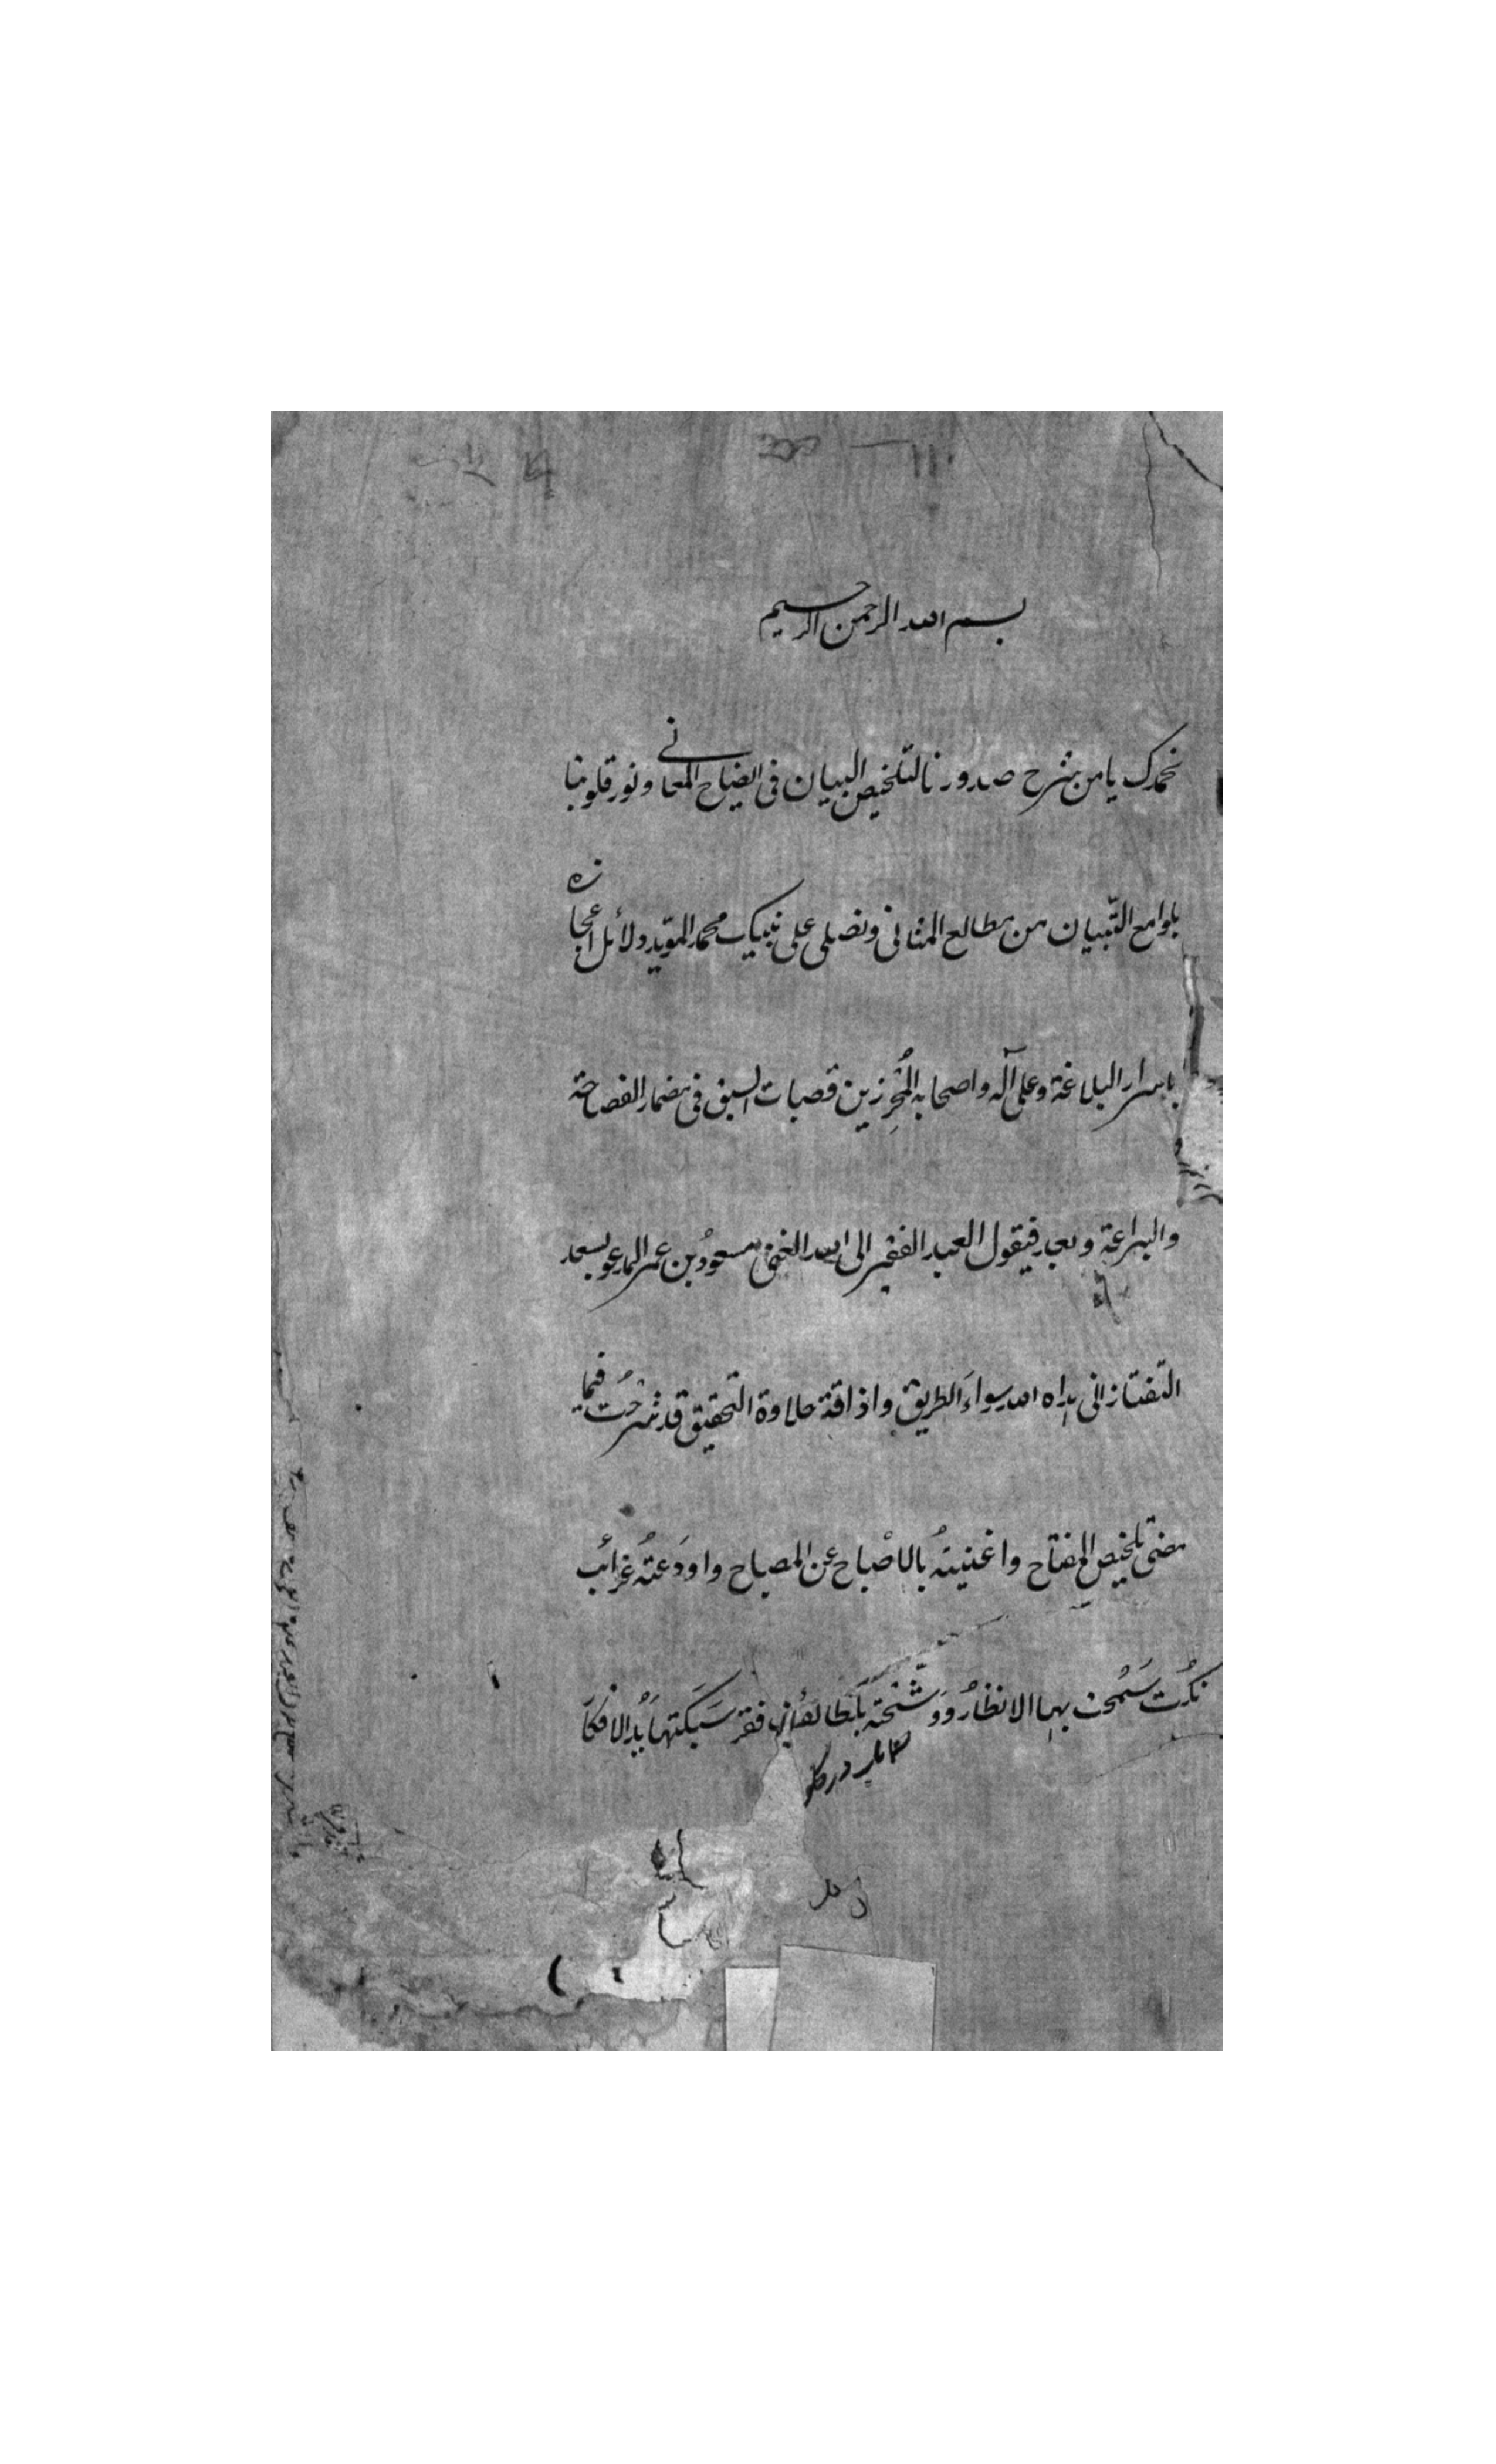 بسم الله الرحمن الرحيم
نحمدك يا من شرح صدورنا لتلخيص البيان فى ايضاح المعانى ونور قلوبنا
بلوامع التّبيان من مطالع المثانى ونصلى على نبيك محمد المؤيد دلائل اعجازه
باسرار البلاغة وعلى آله واصحابه المُحرِزين قصبات السبق فى مضمار الفصاحة
والبراعة وبعد فيقول العبد الفقير الى الله الغنى مسعودُ بن عمر المدعو بسعد
التّفتازانى هداه الله سواءَ الطريق واذاقة حلاوة التّحقيق قد شرحُت فيما
مضى تلخيص المفتاح واغنيتهُ بالاصْباح عن المصباح واودَعتهُ غرائب
نكُت سَمُحت بها الانظارُ ووشّحتهَ بلطائف فقر سَبَكتهَا يدُ الافكاَ